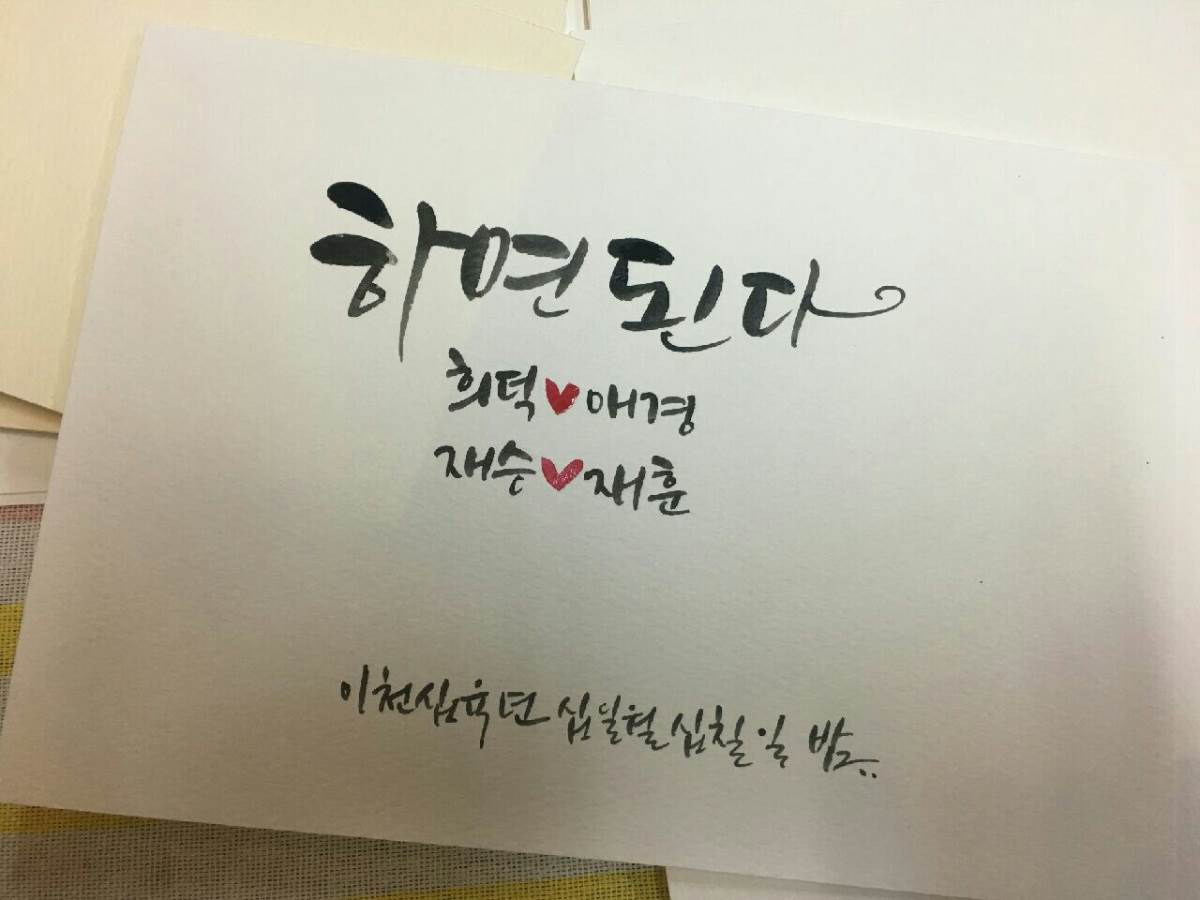 하면 된다
희덕♥애경
재승♥재훈
이천십육년 십일월 십칠일 밤..